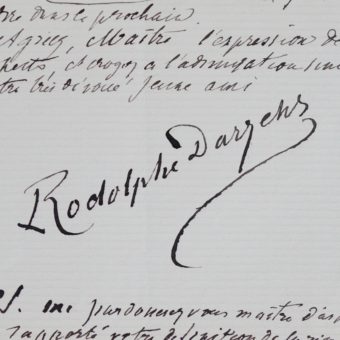 dans le prochain
Agréez, Maître l'expression de
et croyez à l'admiration
très dévoué jeune ami
Rodolphe Darzens
P.S. me pardonnerez vous maître d'avoir
rapporté votre de la